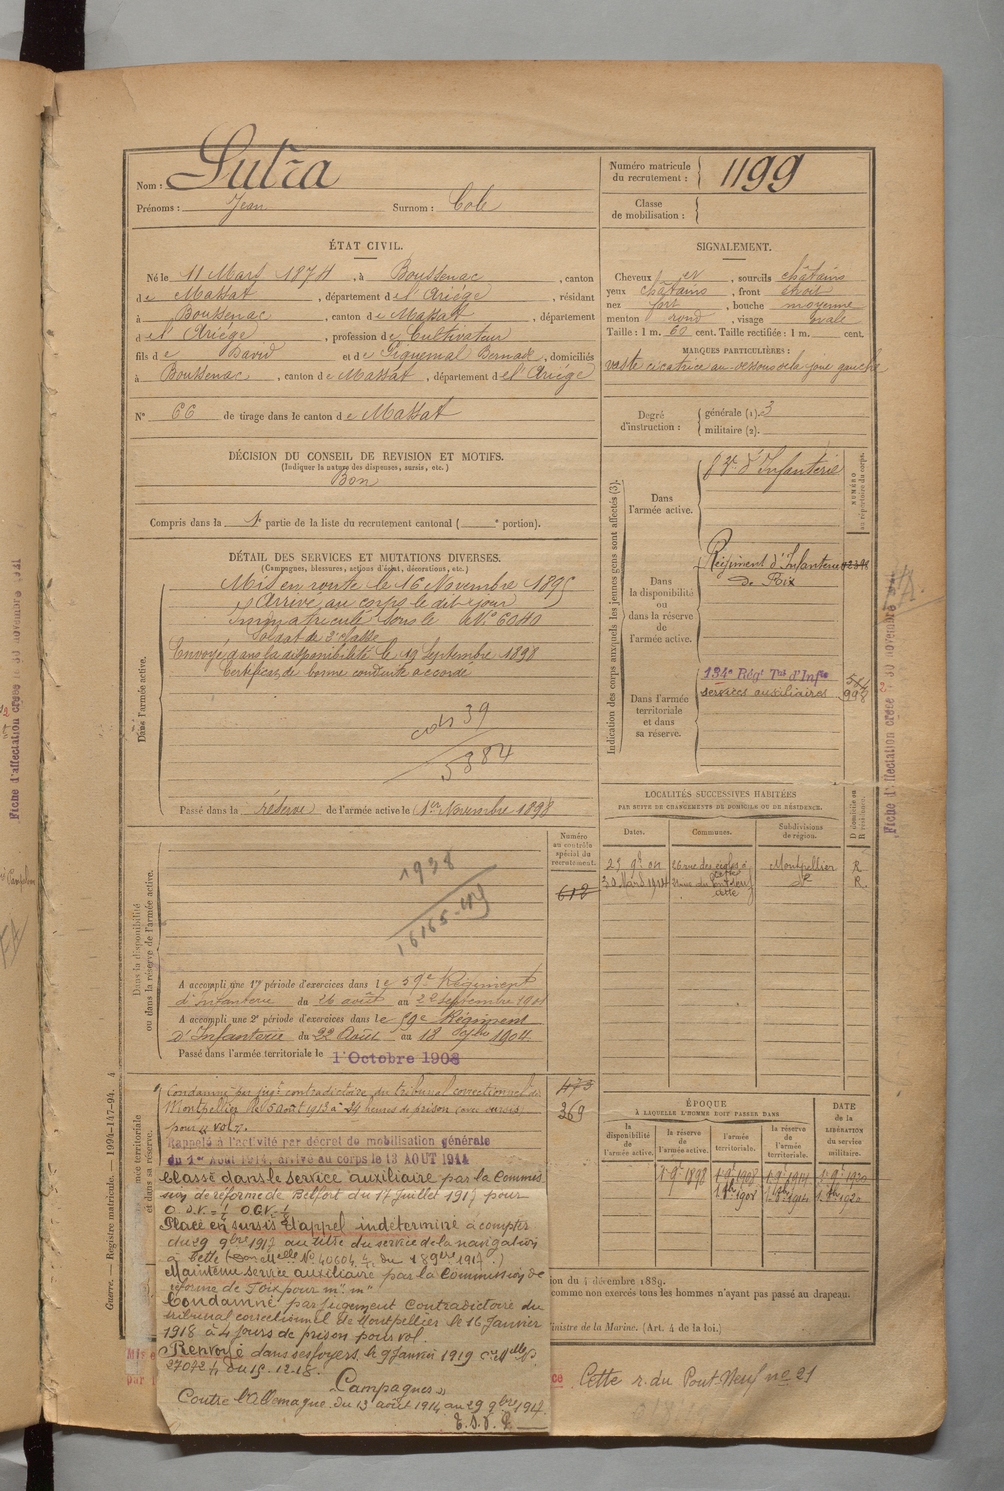 Nom : Sutra
Prénoms : Jean Surnom : Cole
Numéro matricule du recrutement : 1199
Classe de mobilisation :
ÉTAT CIVIL.
Né le 11 Mars 1874, à Boussenac, canton
de Massat, département de l'Ariége, résidant
à Boussenac, canton de Massat, département
de l'Ariége, profession de Cultivateur
fils de David et de Piquemal Bernade, domiciliés
à Boussenac, canton de Massat, département de l'Ariége
N° 66 de tirage dans le canton de Massat
SIGNALEMENT.
Cheveux et, sourcils châtains
yeux châtains, front étroit
nez fort, bouche moyenne
menton rond, visage ovale
Taille : 1 m. 60 cent. Taille rectifiée : 1 m. cent.
MARQUES PARTICULIÈRES :
vaste cicatrice au-dessous de la joue gauche
Degré d'instruction : générale (1). 3
militaire (2).
DÉCISION DU CONSEIL DE REVISION ET MOTIFS.
(Indiquer la nature des dispenses, sursis, etc.)
Bon
Compris dans la 1e partie de la liste du recrutement cantonal ( e portion).
DÉTAIL DES SERVICES ET MUTATIONS DIVERSES.
(Campagnes, blessures, actions d'éclat, décorations, etc.)
Dans l'armée active.
Mis en route le 16 Novembre 1895
Arrivé au corps le dit jour
Immatriculé sous le N° 6040
Soldat de 2e classe
Envoyé dans la disponibilité le 19 Septembre 1898
Certificat de bonne conduite accordé
39
5884
Passé dans la réserve de l'armée active le 1er Novembre 1898
Indication des corps auxquels les jeunes gens sont affectés (3).
NUMÉRO au répertoire du corps.
Dans l'armée active.
d'Infanterie
Dans la disponibilité ou dans la réserve de l'armée active.
Régiment d'Infanterie
de Foix
Dans l'armée territoriale et dans sa réserve.
134e Rég' Tal d'Infie
services auxiliaires
LOCALITÉS SUCCESSIVES HABITÉES
PAR SUITE DE CHANGEMENTS DE DOMICILE OU DE RÉSIDENCE.
Dates. Communes. Subdivisions de région. D domicile ou R résidence.
Cette Montpellier R
30 Mars 1914 Cette do R.
Dans la disponibilité ou dans la réserve de l'armée active.
Numéro au contrôle spécial du recrutement.
612
1938
16165-49
A accompli une 1re période d'exercices dans le 59e Régiment
d'Infanterie du 26 août au 22 Septembre 1901
A accompli une 2e période d'exercices dans le 59e Régiment
d'Infanterie du 22 Août au 18 7bre 1904
Passé dans l'armée territoriale le 1er Octobre 1908
473
369
Condamné par jugt contradictoire du tribunal correctionnel de
Montpellier le 5 août 1913 à 24 heures de prison (avec sursis)
pour "vol".
Rappelé à l'activité par décret de mobilisation générale
du 1er Août 1914, arrivé au corps le 13 AOUT 1914
Classé dans le service auxiliaire par la Commis
sion de réforme de Belfort du 17 juillet 1917 pour
Placé en sursis d'appel indéterminé à compter
du 29 9bre 1917 au titre du service de la navigation
à Cette (Don Melle No 40604 du 18 9bre 1917.)
Maintenu service auxiliaire par la Commission de
réforme de Foix pour m. m"
Condamné par jugement Contradictoire du
tribunal correctionnel de Montpellier le 16 Janvier
1918 à 4 jours de prison pour vol.
Renvoyé dans ses foyers le 9 Janvier 1919
27042 du 15.12.18.
"Campagnes"
Contre l'Allemagne du 13 août 1914 au 29 9bre 1917
ÉPOQUE
À LAQUELLE L'HOMME DOIT PASSER DANS
la disponibilité de l'armée active. la réserve de l'armée active. l'armée territoriale. la réserve de l'armée territoriale.
DATE de la LIBÉRATION du service militaire.
ion du 4 décembre 1889.
comme non exercés tous les hommes n'ayant pas passé au drapeau.
Ministre de la Marine. (Art. 4 de la loi.)
Cette r. du Pont Neuf no 21
Guerre. — Registre matricule. — 1994-147-94. 4
Fiche d'affectation créée le 30 novembre